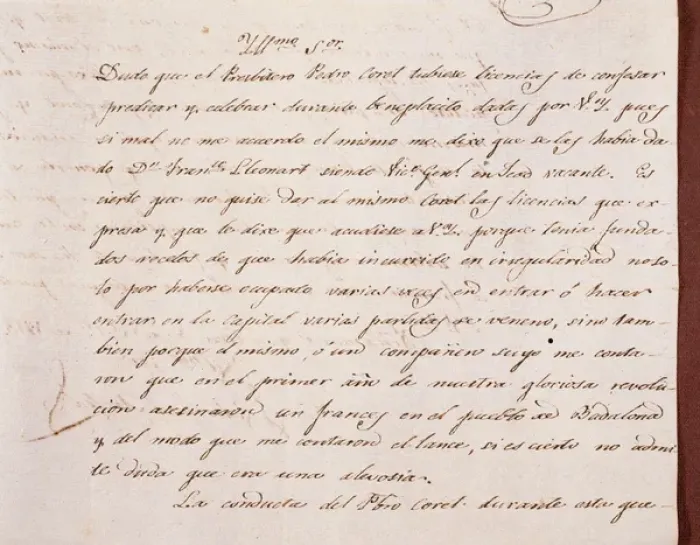 Yllmo Sor.
Dudo que el Presbitero Pedro Corel tubiese licencias de confesar
predicar y celebrar durante beneplacito dadas por V.Y. pues
si mal no me acuerdo el mismo me dixo que se las habia da-
do Dn. Franco. Lleonart siendo Vico. Genl. en Sead vacante. Es
cierto que no quise dar al mismo Corel las licencias que ex-
presa y que le dixe que acudiese a V.Y. porque tenia funda-
dos recelos de que habia incurrido en irregularidad no so-
lo por haberse ocupado varias veces en entrar ó hacer
entrar en la Capital varias partidas de veneno, sino tam-
bien porque el mismo, ó un compañero suyo me conta-
ron que en el primer año de nuestra gloriosa revolu-
cion asesinaron un frances en el pueblo de Badalona
y del modo que me contaron el lance, si es cierto no admi-
te duda que era una alevosia.
La conducta del Pbro Corel durante esta que-